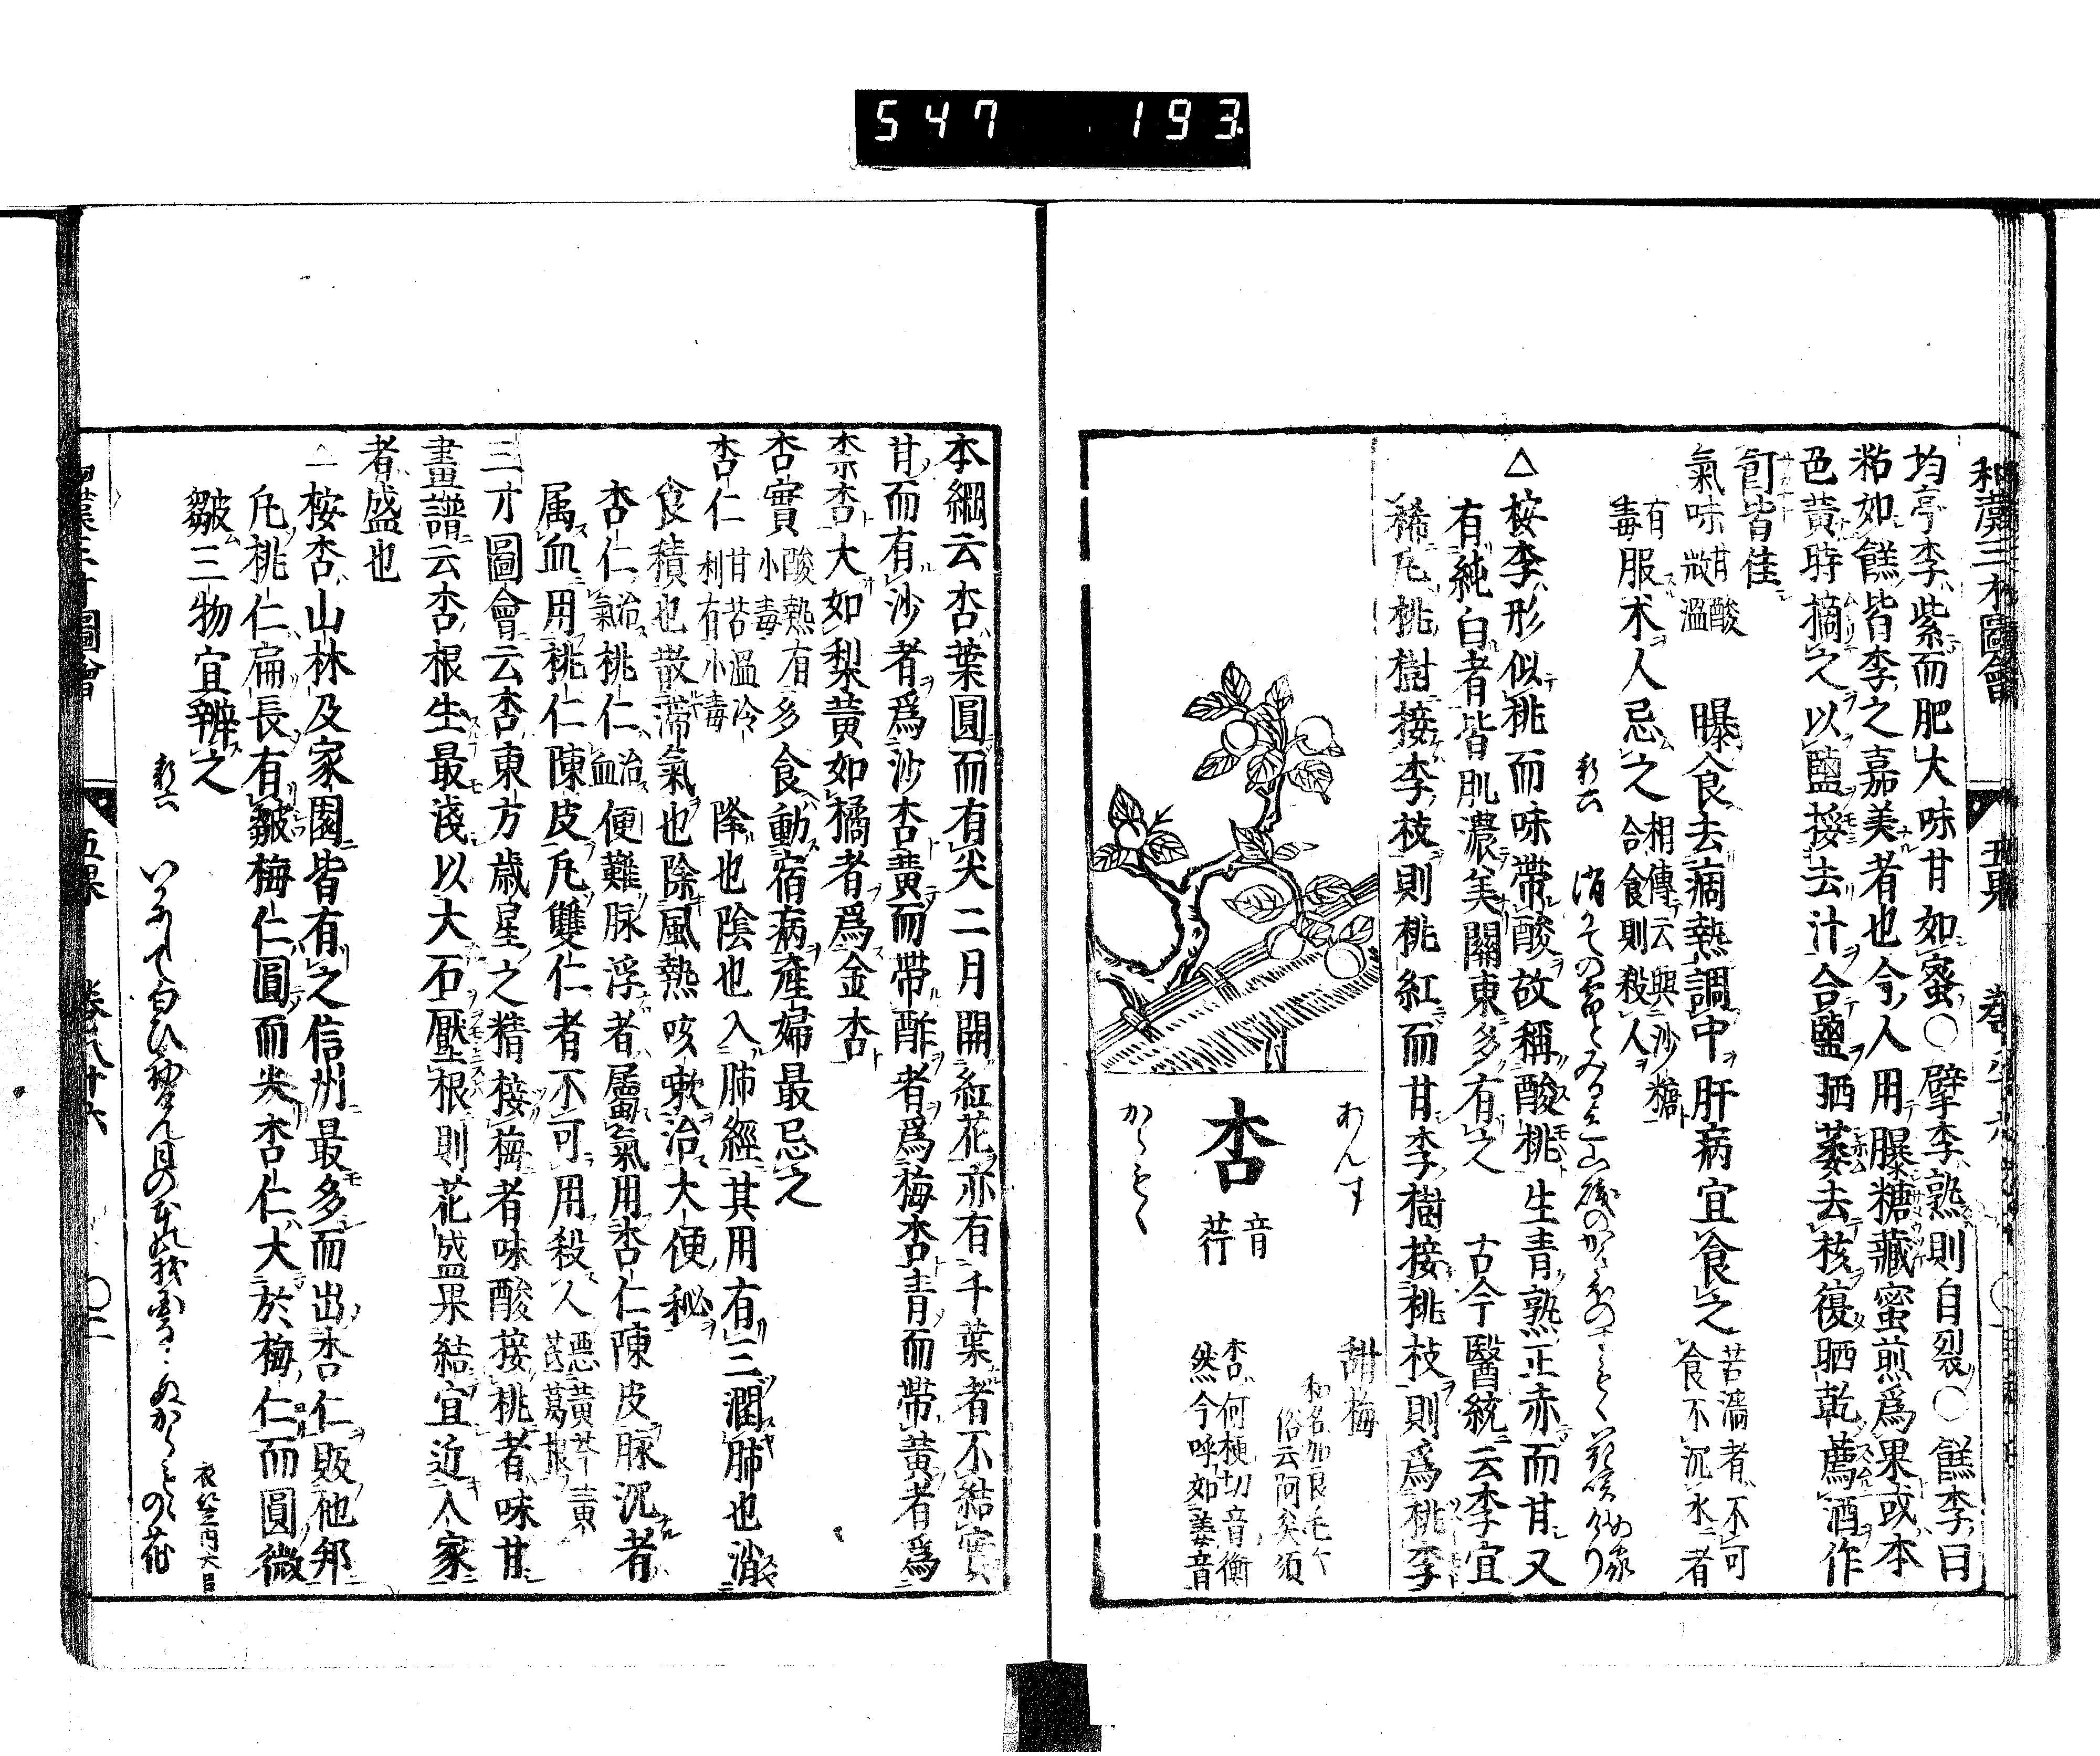 547 193
和漢三才圖會 五果 卷八十六
均亭李紫而肥大味甘如蜜〇擘李熟則自裂〇餻李曰
粘如餻皆李之嘉美者也今人用曝糖藏蜜煎爲果或本
色黃時摘之以鹽挼去汁合鹽晒萎去核復晒乾薦酒作
飣皆佳
氣味甘酸微溫 曝食去痼熱調中肝病宜食之苦濇者不可食不沉水者
有毒服朮人忌之相傳云與沙糖合食則殺人
△按李形似桃而味帶酸故稱酸桃生青熟正赤而甘又
有純白者皆肌濃美關東多有之 古今醫統云李宜
稀凡桃樹接李枝則桃紅而甘李樹接桃枝則爲桃李
あんず
からもゝ
杏
音荇
甜梅
和名加良毛々
俗云阿矣須
杏何梗切音衡
然今呼如姜音
本綱云杏葉圓而有尖二月開紅花亦有千葉者不結實
甘而有沙者爲沙杏黃而帶酢者爲梅杏青而帶黃者爲
柰杏大如梨黃如橘者爲金杏
杏實酸熱有小毒多食動宿病產婦最忌之
杏仁甘苦溫冷利有小毒 降也陰也入肺經其用有三潤肺也消
食積也散滯氣也除風熱咳嗽治大便秘
杏仁治氣桃仁治血便難脉浮者屬氣用杏仁陳皮脉沉者
属血用桃仁陳皮凡雙仁者不可用殺人惡黃芩黃芪葛根
三才圖會云杏東方歲星之精接梅者味酸接桃者味甘
畫譜云杏根生最淺以大石壓根則花盛果結宜近人家
者盛也
△按杏山林及家園皆有之信州最多而出杏仁販他邦
凡桃仁扁長有皺梅仁圓而尖杏仁大於梅仁而圓微
皺三物宜辨之
和漢三才圖會 五果 卷八十六 〇二